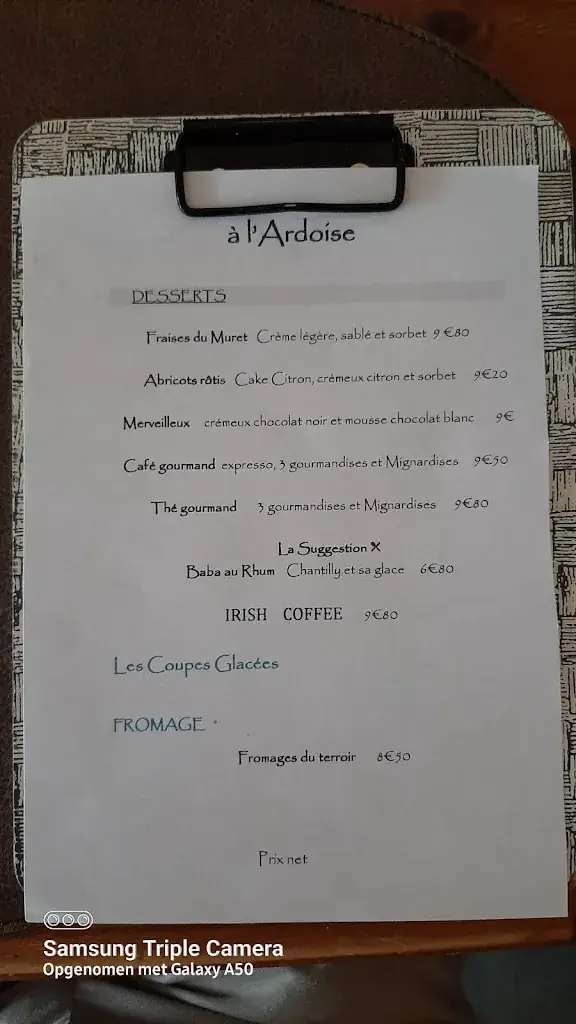 à l'Ardoise
DESSERTS
Fraises du Muret Crème légère, sablé et sorbet 9€80
Abricots rôtis Cake Citron, crémeux citron et sorbet 9€20
Merveilleux crémeux chocolat noir et mousse chocolat blanc 9€
Café gourmand expresso, 3 gourmandises et Mignardises 9€50
Thé gourmand 3 gourmandises et Mignardises 9€80
La Suggestion
Baba au Rhum Chantilly et sa glace 6€80
IRISH COFFEE 9€80
Les Coupes Glacées
FROMAGE
Fromages du terroir 8€50
Prix net
Samsung Triple Camera
Opgenomen met Galaxy A50